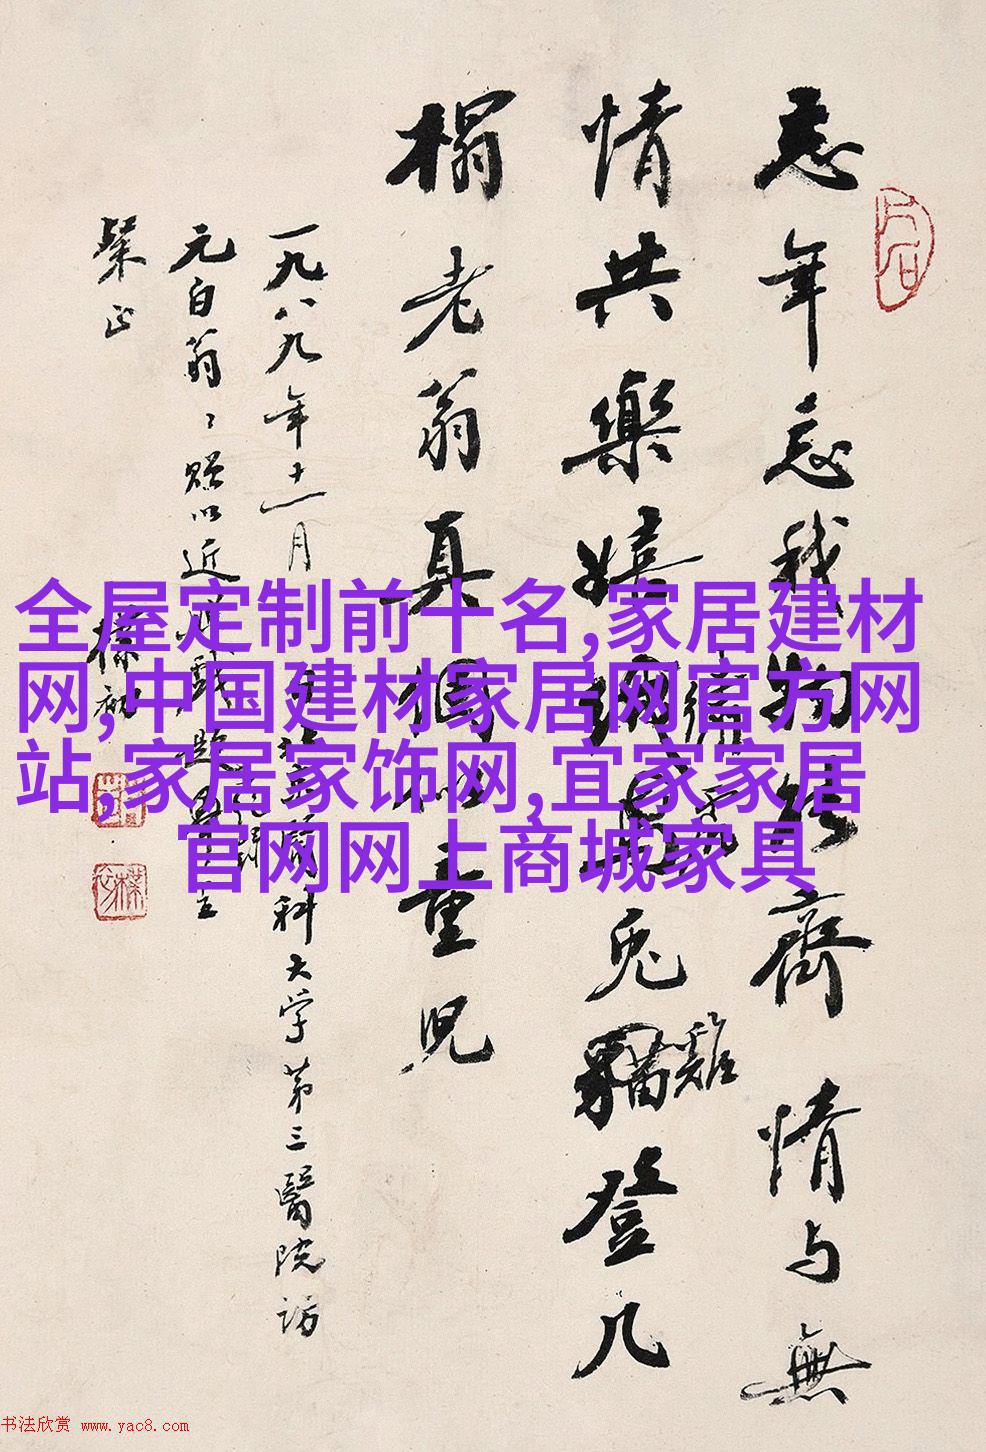 忘年忘我物齊情与無
情共樂嬉兔貓登几
雞
榻老翁真個似童兒
一九八九年十一月科大学第三醫院訪
元白翁〻贈以近題
粲正
樸初
全屋定制前十名,家居建材
网,中国建材家居网官方网
站,家居家饰网,宜家家居
官网网上商城家具
书法欣赏 www.yac8.com